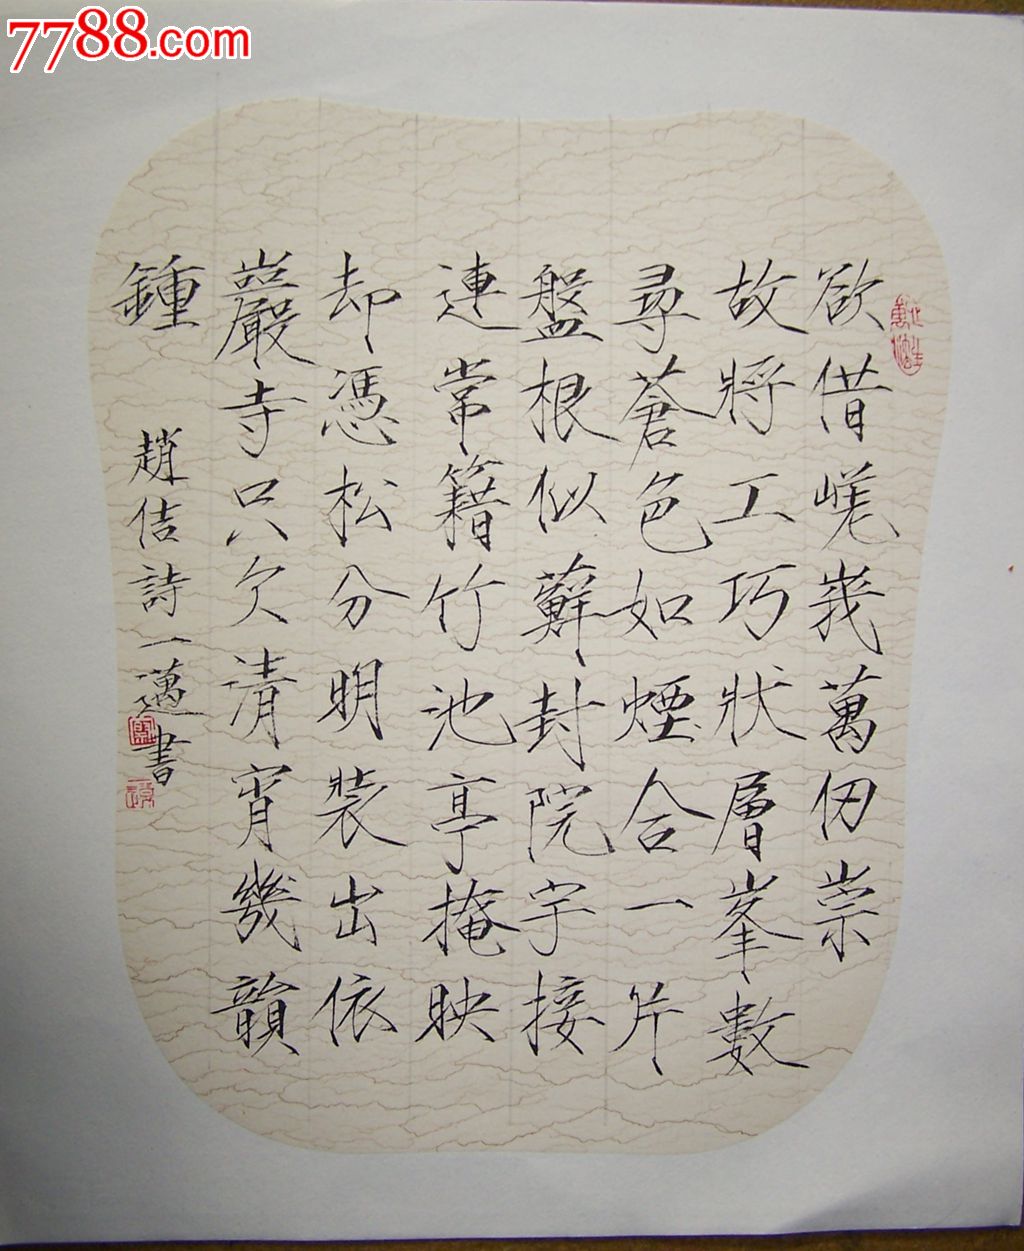 7788.com
欲借嵯峩萬仞崇
故將工巧狀層峯數
尋蒼色如煙合一片
盤根似蘚封院宇接
連常籍竹池亭掩映
却憑松分明裝出依
巖寺只欠清宵幾韻
鍾
趙佶詩一邁書